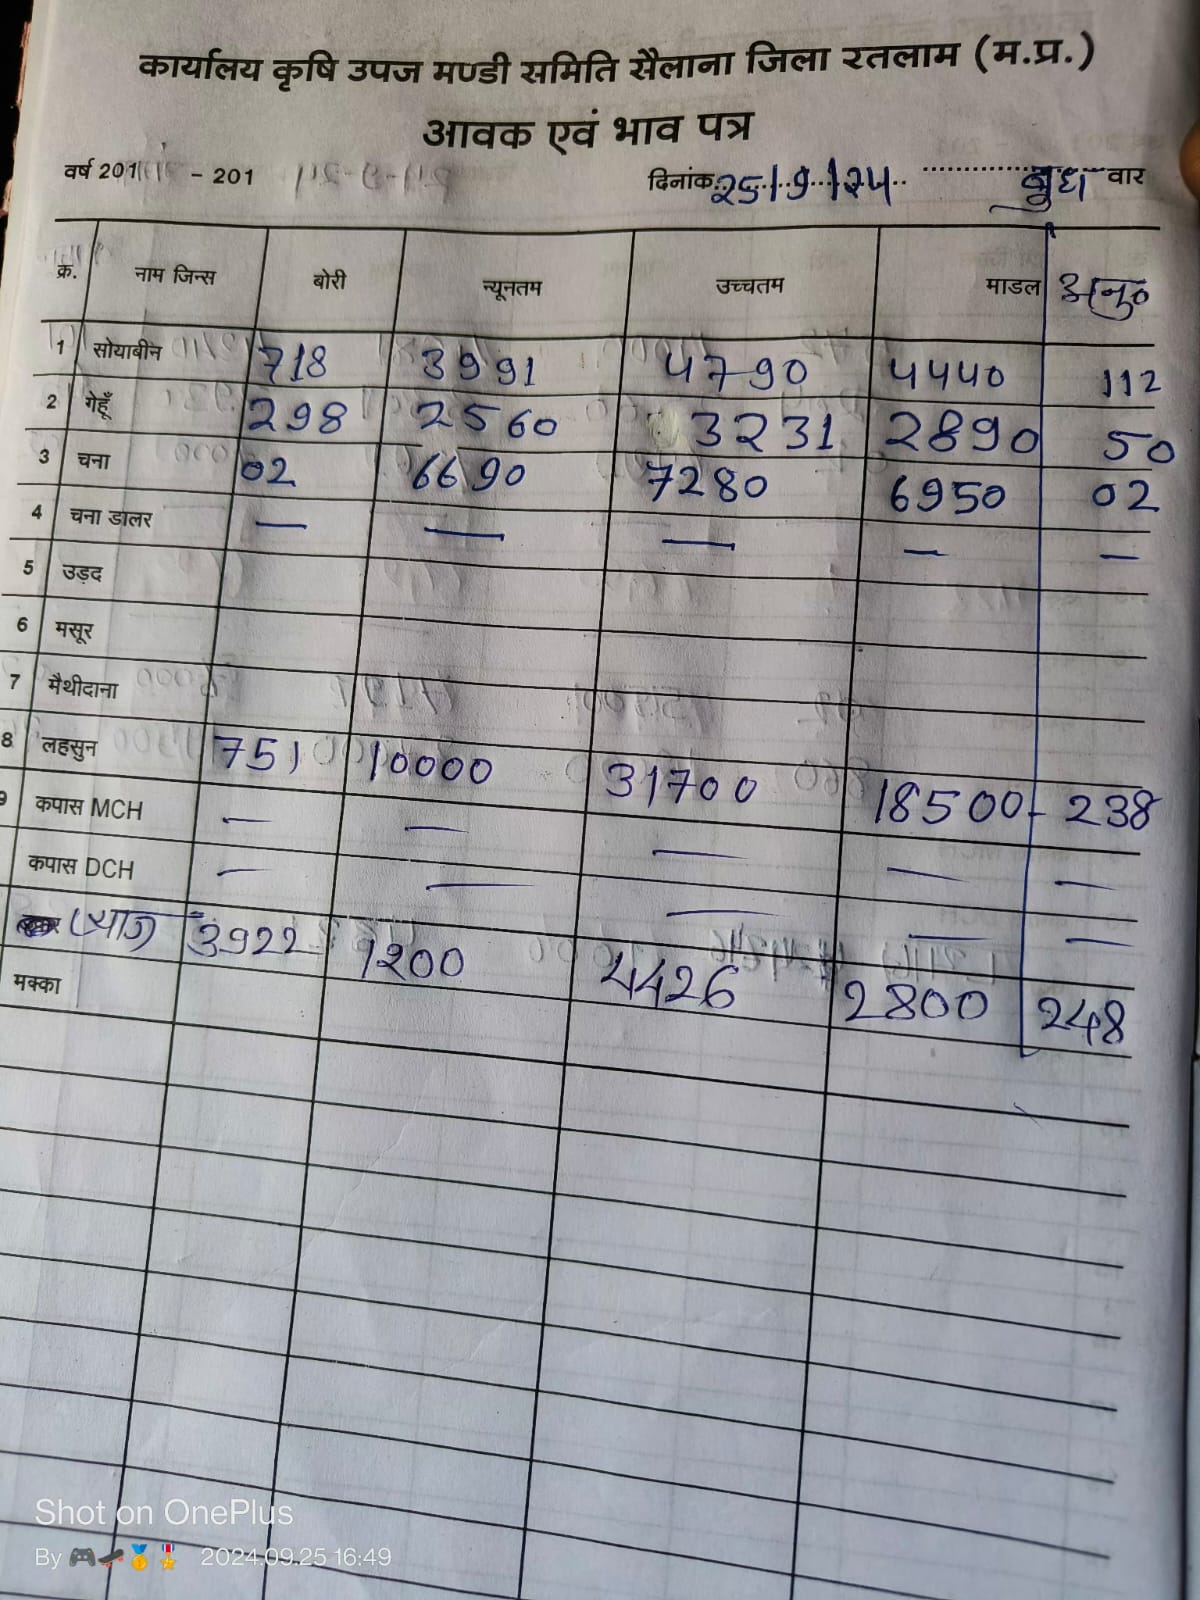 कार्यालय कृषि उपज मण्डी समिति सैलाना जिला रतलाम (म.प्र.)
आवक एवं भाव पत्र
वर्ष 201 - 201 दिनांक 25/9/24 बुध वार
क्र. नाम जिन्स बोरी न्यूनतम उच्चतम माडल अनु०
1 सोयाबीन 718 3991 4790 4440 112
2 गेहूँ 298 2560 3231 2890 50
3 चना 02 6690 7280 6950 02
4 चना डालर — — — — —
5 उड़द
6 मसूर
7 मैथीदाना
8 लहसुन 751 10000 31700 18500 - 238
9 कपास MCH — — — — —
कपास DCH — — — — —
प्याज 3922 1200 4426 2800 248
मक्का
Shot on OnePlus
By 🎮🛹🥇🎖️ 2024.09.25 16:49